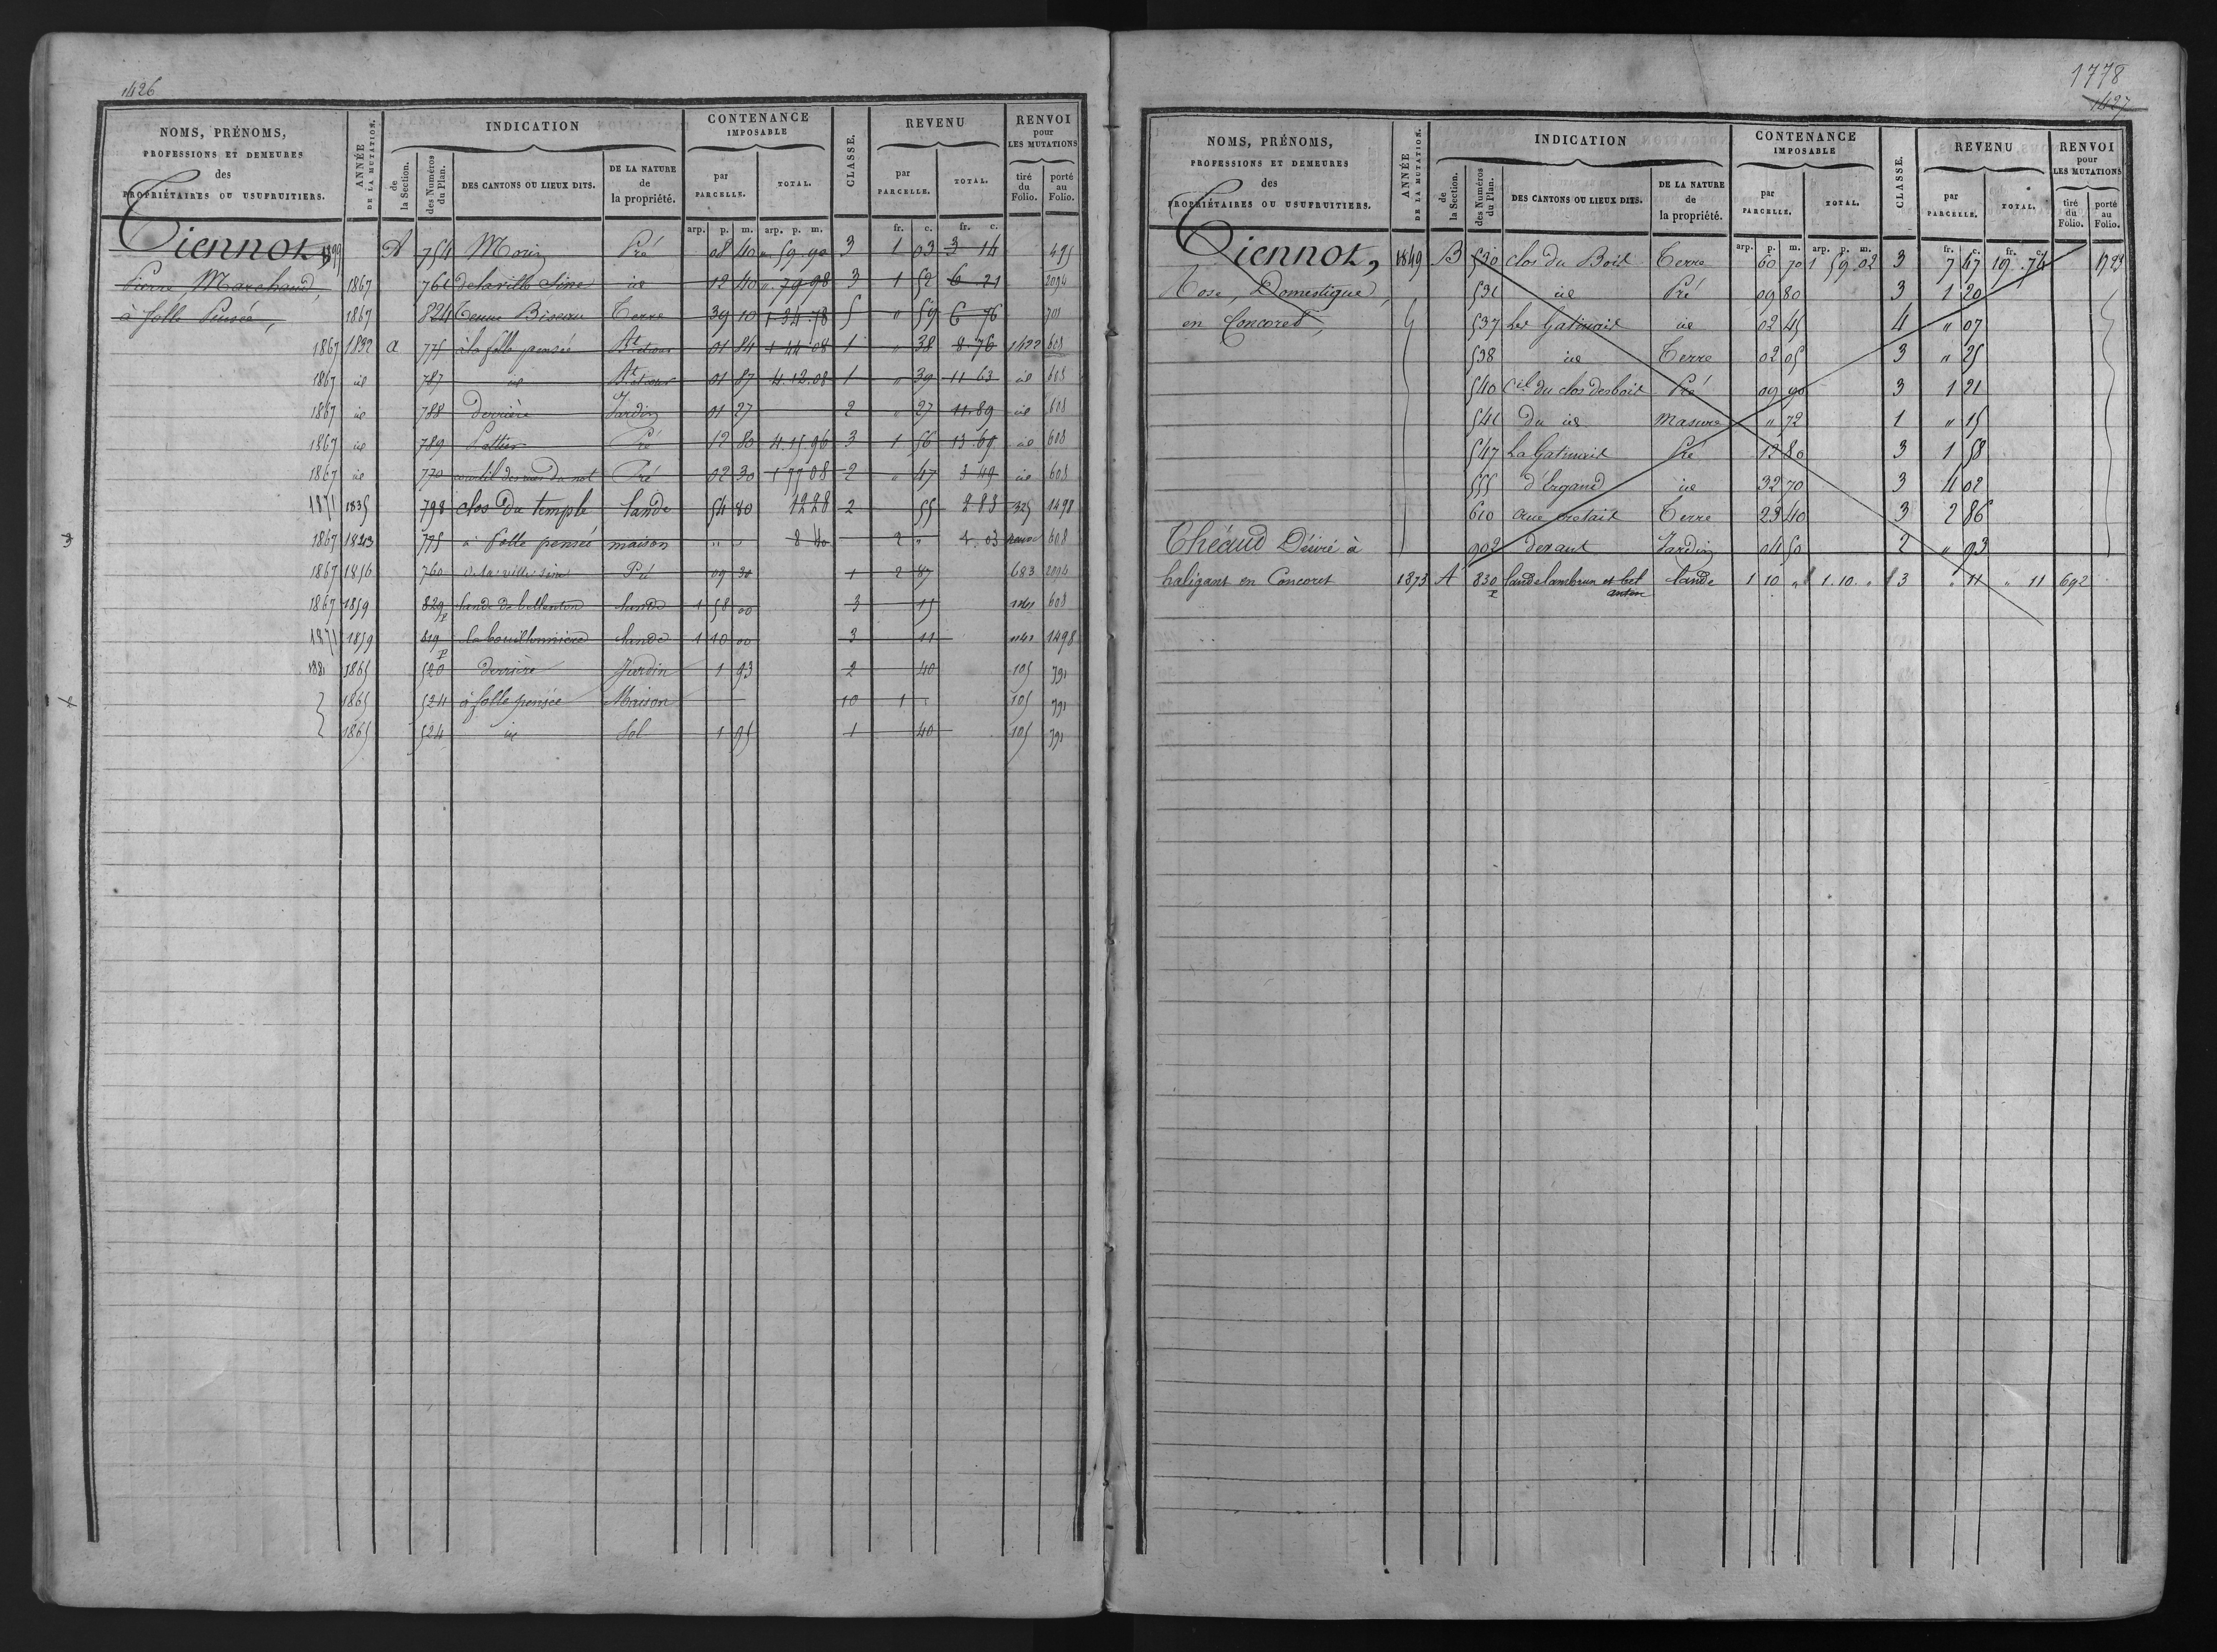 1426
NOMS, PRÉNOMS,
PROFESSIONS ET DEMEURES
des
PROPRIÉTAIRES OU USUFRUITIERS.
ANNÉE
DE LA MUTATION.
INDICATION
de
la Section.
des Numéros
du Plan.
DES CANTONS OU LIEUX DITS.
DE LA NATURE
de
la propriété.
CONTENANCE
IMPOSABLE
par
PARCELLE.
TOTAL.
CLASSE.
REVENU
par
PARCELLE.
TOTAL.
RENVOI
pour
LES MUTATIONS
tiré
du
Folio.
porté
au
Folio.
arp. p. m. arp. p. m. fr. c. fr. c.
Tiennot A 754 Morin Pré 08 40 " 59.90 3 1 03 3 14 495
Pierre Marchand, 1867 761 de la ville Sine id 12 40 " 79.98 3 1 52 6 21 2094
à folle Pensée, 1867 824 Tenue Biseau Terre 39 10 1.34.78 5 " 59 6 76 701
1867 1832 a 775 à la folle pensée 01 84 1 44 08 1 " 38 8 76 1422 608
1867 id 787 id 01 87 4.12.08 1 " 39 11 63 id 608
1867 id 788 Derrière Jardin 01 27 2 " 27 11.89 id 608
1867 id 789 Pré 12 80 4.15.96 3 1 56 13.69 id 608
1867 id 770 Pré 02 30 1 77 08 2 " 47 3 49 id 608
1871 1835 798 clos du temple lande 54 80 1228 2 55 2 83 325 1498
1867 1843 775 à folle pensée maison " " 8 40 2 " 4.03 608
1867 1856 760 Pré 09 30 1 2 87 683 2094
1867 1859 829 p lande de bellenton lande 1 58 00 3 15 608
1871 1859 819 p lande 1 10 00 3 11 1141 1498
1881 1865 520 derrière Jardin 1 93 2 40 105 791
1865 524 à folle pensée Maison 10 1 105 791
1865 524 id Sol 1 95 1 40 105 791
1778
1427
NOMS, PRÉNOMS,
PROFESSIONS ET DEMEURES
des
PROPRIÉTAIRES OU USUFRUITIERS.
ANNÉE
DE LA MUTATION.
INDICATION
de
la Section.
des Numéros
du Plan.
DES CANTONS OU LIEUX DITS.
DE LA NATURE
de
la propriété.
CONTENANCE
IMPOSABLE
par
PARCELLE.
TOTAL.
CLASSE.
REVENU
par
PARCELLE.
TOTAL.
RENVOI
pour
LES MUTATIONS
tiré
du
Folio.
porté
au
Folio.
arp. p. m. arp. p. m. fr. c. fr. c.
Tiennot, 1849 B 530 clos du Bois Terre 60 70 1 59 02 3 7 67 19.74 1723
Rose, Domestique, 531 id Pré 09 80 3 1 20
en Concoret 537 Les Gatinais id 02 45 4 " 07
538 id Terre 02 05 3 " 25
540 du clos des bois Pré 09 90 3 1 21
541 Du id Masure " 72 1 " 15
547 La Gatinais Pré 12 80 3 1 58
555 d'Ergand id 32 70 3 4 02
610 Terre 23 40 3 2 86
Théaud Désiré à 902 devant Jardin 04 50 2 " 93
haligans en Concoret 1873 A 830 p lande lambrun et bel lande 1 10 " 1.10. " 3 " 11 " 11 692